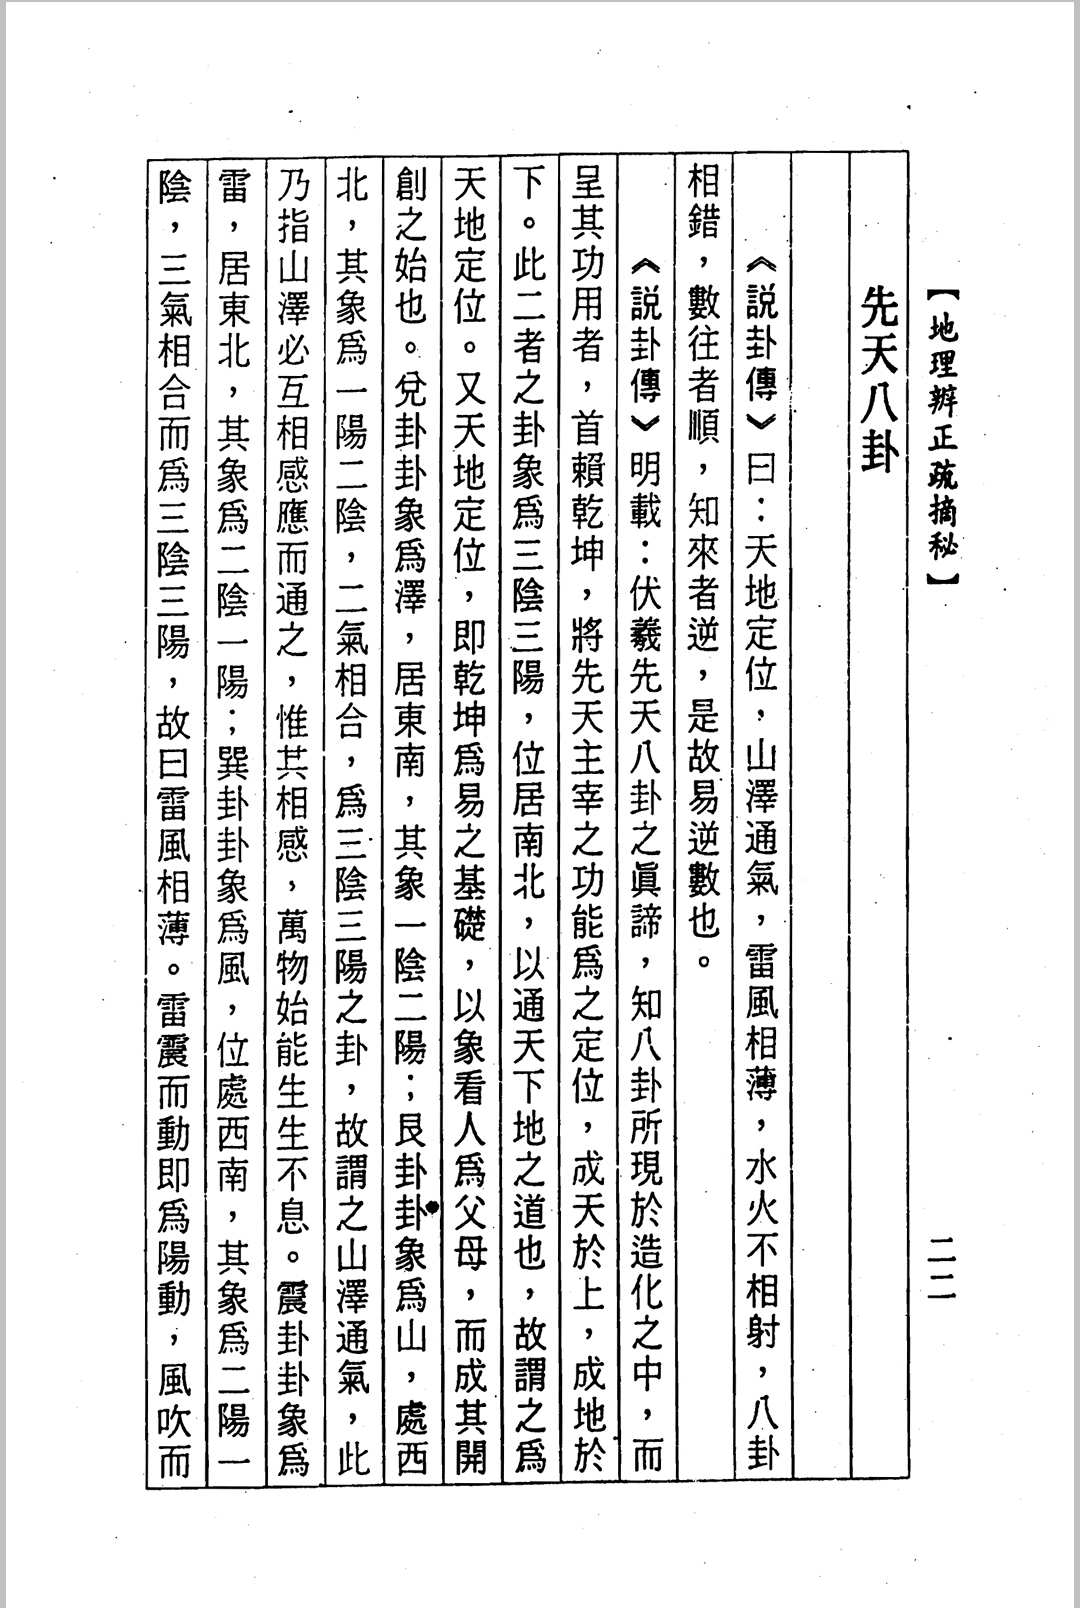 【地理辨正疏摘秘】
二二
先天八卦
《説卦傳》曰：天地定位，山澤通氣，雷風相薄，水火不相射，八卦
相錯，數往者順，知來者逆，是故易逆數也。
《説卦傳》明載：伏羲先天八卦之眞諦，知八卦所現於造化之中，而
呈其功用者，首賴乾坤，將先天主宰之功能爲之定位，成天於上，成地於
下。此二者之卦象爲三陰三陽，位居南北，以通天下地之道也，故謂之爲
天地定位。又天地定位，即乾坤爲易之基礎，以象看人爲父母，而成其開
創之始也。兌卦卦象爲澤，居東南，其象一陰二陽；艮卦卦象爲山，處西
北，其象爲一陽二陰，二氣相合，爲三陰三陽之卦，故謂之山澤通氣，此
乃指山澤必互相感應而通之，惟其相感，萬物始能生生不息。震卦卦象爲
雷，居東北，其象爲二陰一陽；巽卦卦象爲風，位處西南，其象爲二陽一
陰，三氣相合而爲三陰三陽，故曰雷風相薄。雷震而動即爲陽動，風吹而